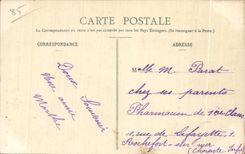 85
CARTE POSTALE
La Correspondance au recto n'est pas acceptée par tous les Pays Étrangers. (Se renseigner à la Poste)
CORRESPONDANCE
ADRESSE
Doux Souvenir
Votre amie
Marthe
Mlle M. Barat
chez ses parents
Pharmacien de 1ère classe
1, rue de Lafayette, 1
Rochefort-sur-mer
(Charente Infre)